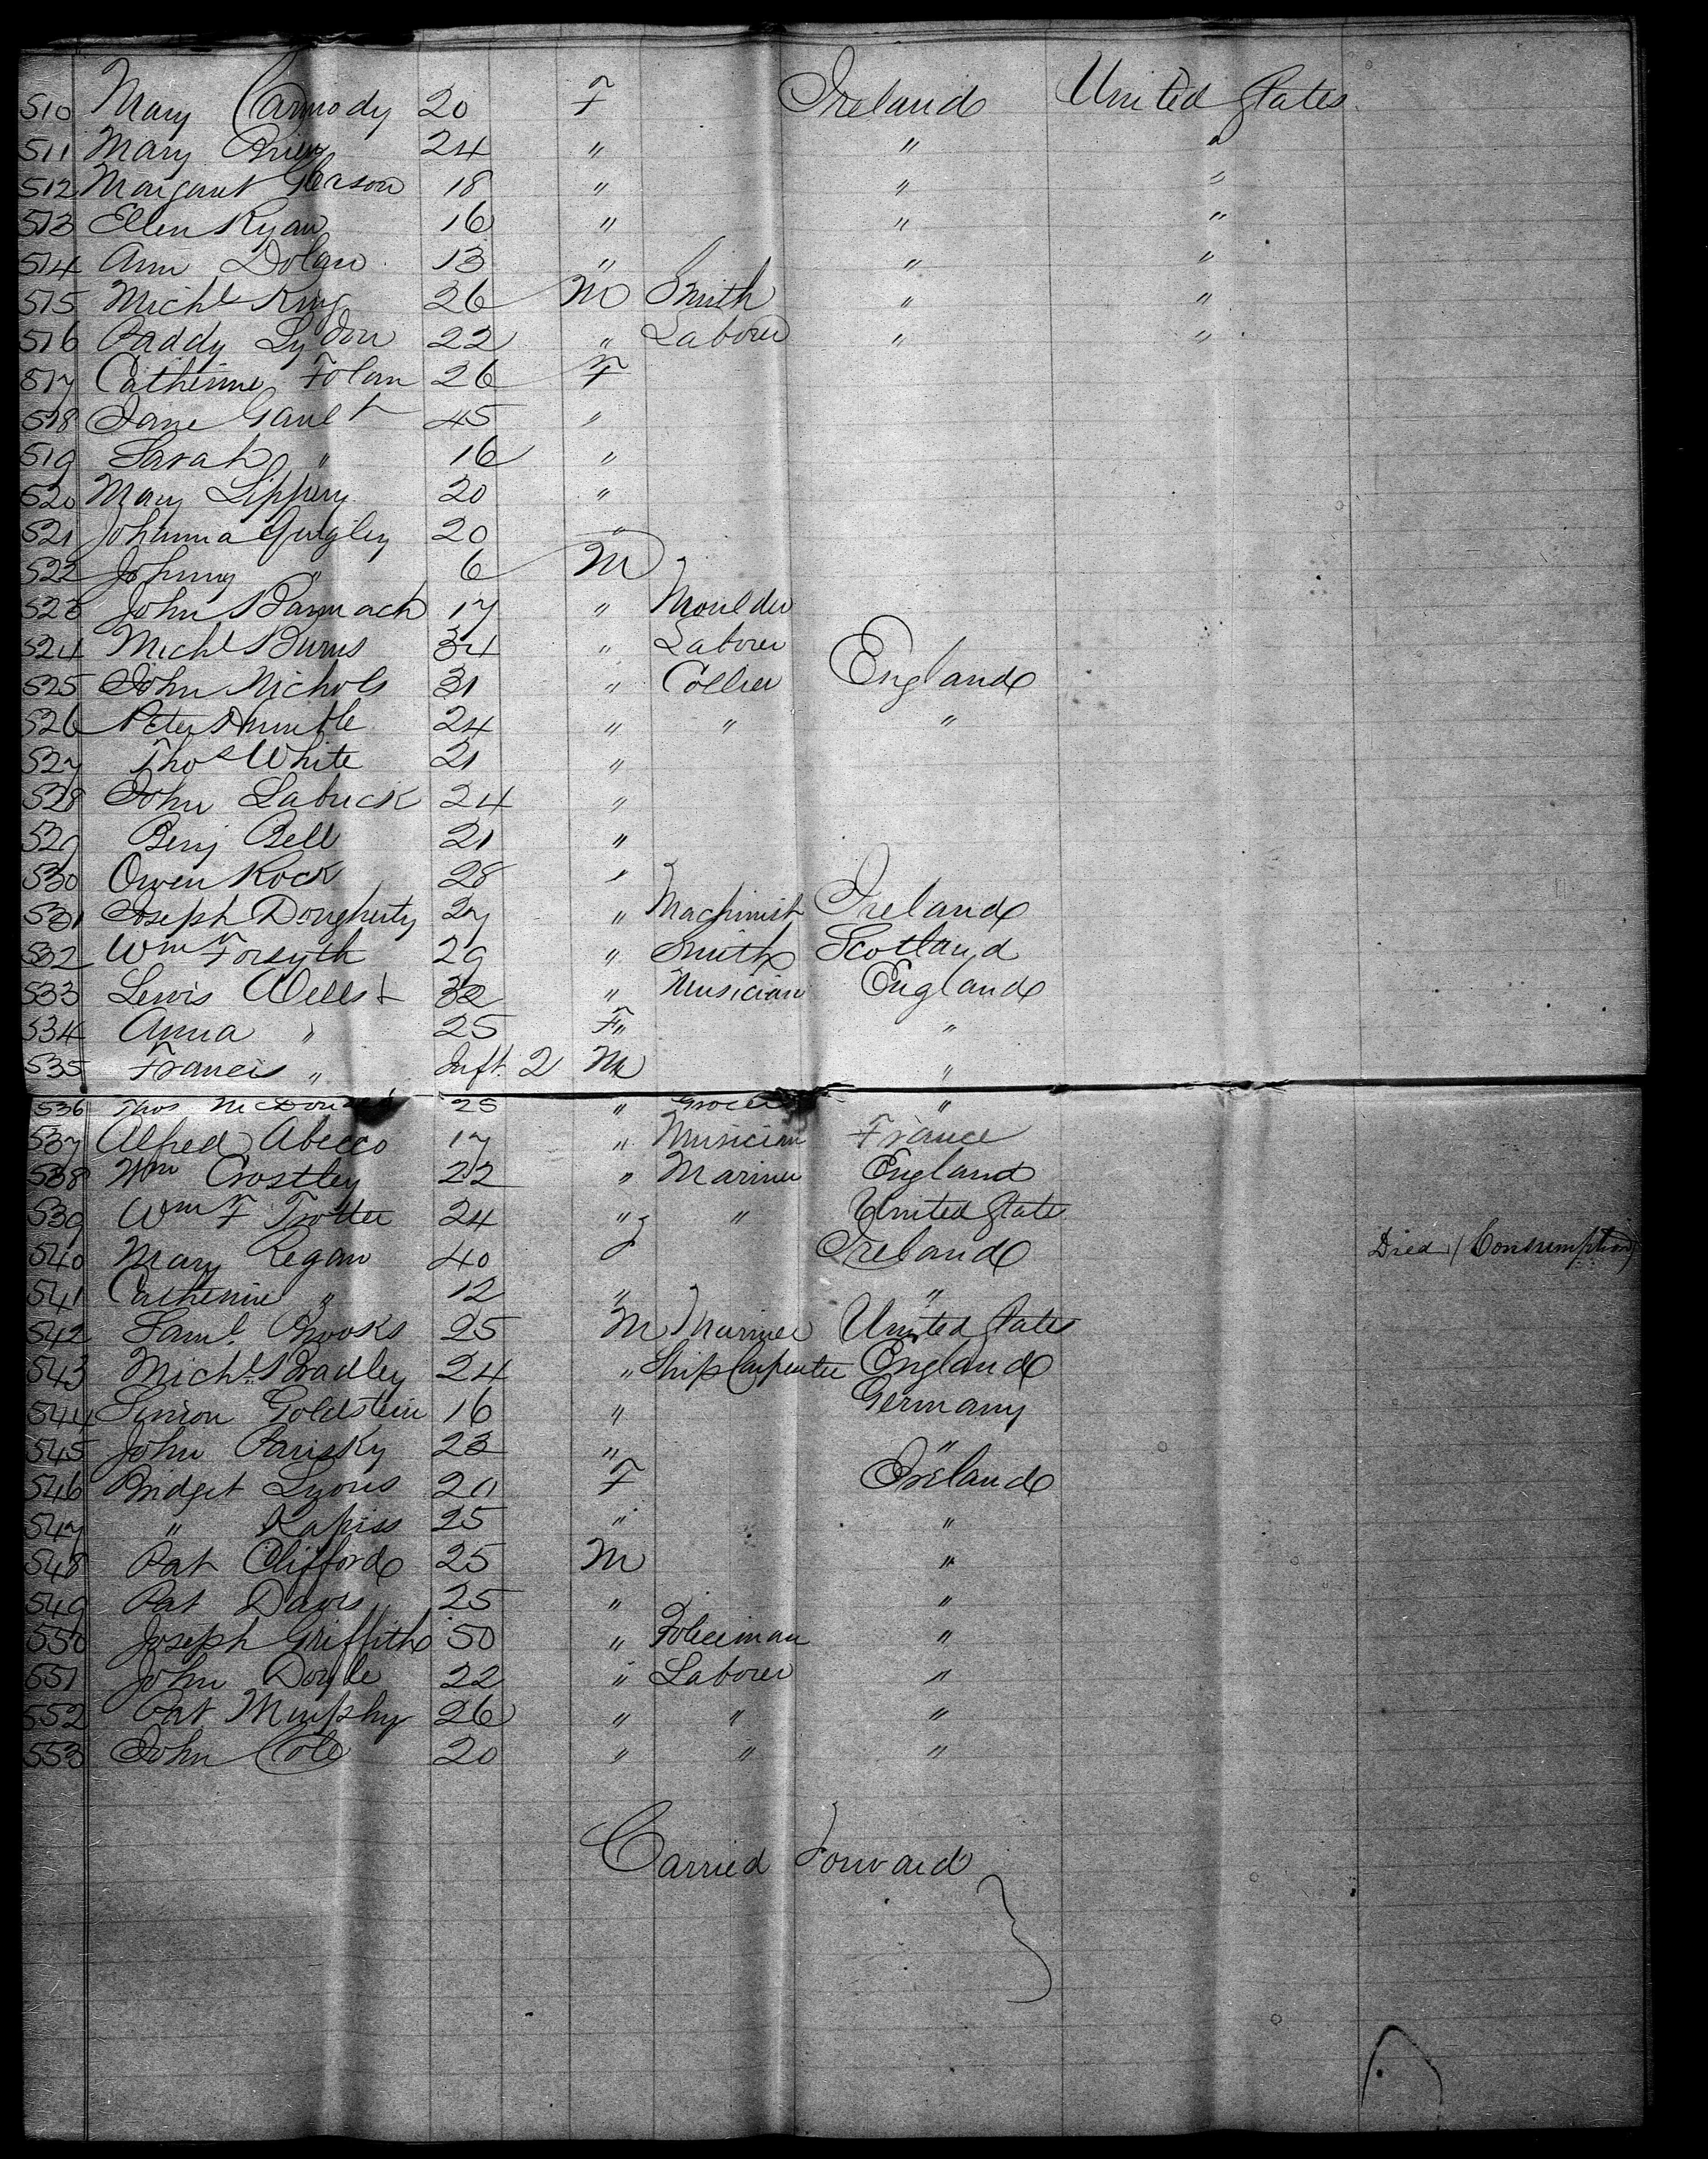 510 Mary Carmody 20 F Ireland United States
511 Mary Brien 24 " " "
512 Margaret Gleason 18 " " "
513 Ellen Ryan 16 " " "
514 Ann Dolan 13 " " "
515 Michl King 26 M Smith " "
516 Paddy Lydon 22 " Laborer " "
517 Catherine Folan 26 F
518 Jane Gault 45 "
519 Sarah " 16 "
520 Mary Lippery 20 "
521 Johanna Quigley 20 "
522 Johnny " 6 M
523 John 17 " Moulder
524 Michl Burns 34 " Laborer
525 John Nichols 31 " Collier England
526 Peter Humble 24 " " "
527 Thos White 21 "
528 John Labuck 24 "
529 Benj Bell 21 "
530 Owen Rock 28 "
531 Joseph Dougherty 27 " Machinist Ireland
532 Wm Forsyth 29 " Smith Scotland
533 Lewis Wells 32 " Musician England
534 Anna " 25 F " "
535 Francis " Inft. 2 M "
536 Thos 25 " Grocer "
537 Alfred Abecco 17 " Musician France
538 Wm Crostley 22 " Mariner England
539 Wm F Trotter 24 " " United States
540 Mary Regan 40 F Ireland Died (Consumption)
541 Catherine " 12 " "
542 Saml. Brooks 25 M Mariner United States
543 Michl. Bradley 24 " Ship Carpenter England
544 Simon Goldstein 16 " Germany
545 John Parisky 23 " "
546 Bridget Lyons 20 F Ireland
547 " 25 " "
548 Pat Clifford 25 M "
549 Pat Davis 25 " "
550 Joseph Griffith 50 " Policiman "
551 John Doyle 22 " Laborer "
552 Pat Murphy 26 " " "
553 John Cole 20 " " "
Carried Forward